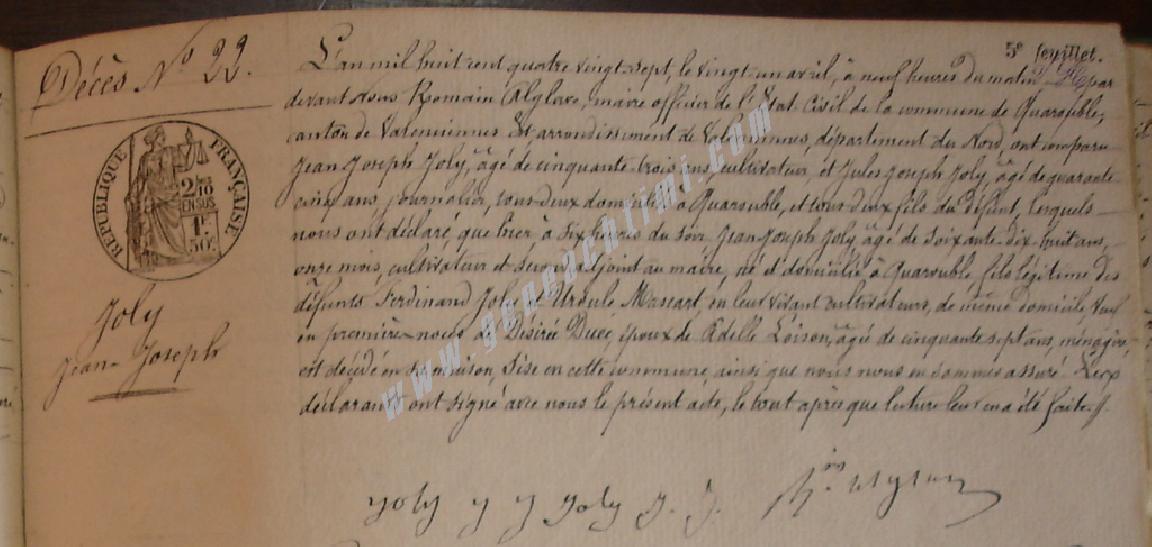 5e feuillet.
Décès No 22.
RÉPUBLIQUE FRANÇAISE
2/10
EN SUS
1F
50c
Joly
Jean-Joseph
L'an mil huit cent quatre vingt-sept, le vingt-un avril, à neuf heures du matin par
devant nous Romain Alglave, maire officier de l'État Civil de la commune de Quarouble,
canton de Valenciennes Est arrondissement de Valenciennes, département du Nord, ont comparu
Jean Joseph Joly, âgé de cinquante-trois ans, cultivateur et Jules Joseph Joly, âgé de quarante
cinq ans, journalier, tous deux domiciliés à Quarouble, et tous deux fils du défunt, lesquels
nous ont déclaré que hier, à six heures du soir, Jean Joseph Joly âgé de soixante-dix-huit ans,
onze mois, cultivateur et second adjoint au maire, né et domicilié à Quarouble, fils légitime des
défunts Ferdinand Joly et Ursule Massart, en leur vivant cultivateurs, de même domicile, veuf
en premières noces de Désirée Duez, époux de Adèle Loison, âgée de cinquante sept ans, ménagère,
est décédé en sa maison, sise en cette commune, ainsi que nous nous en sommes assuré. Les
déclarants ont signé avec nous le présent acte, le tout après que lecture leur en a été faite.
Joly J J Joly J. J. Rin Alglave
www.geneachtimi.com